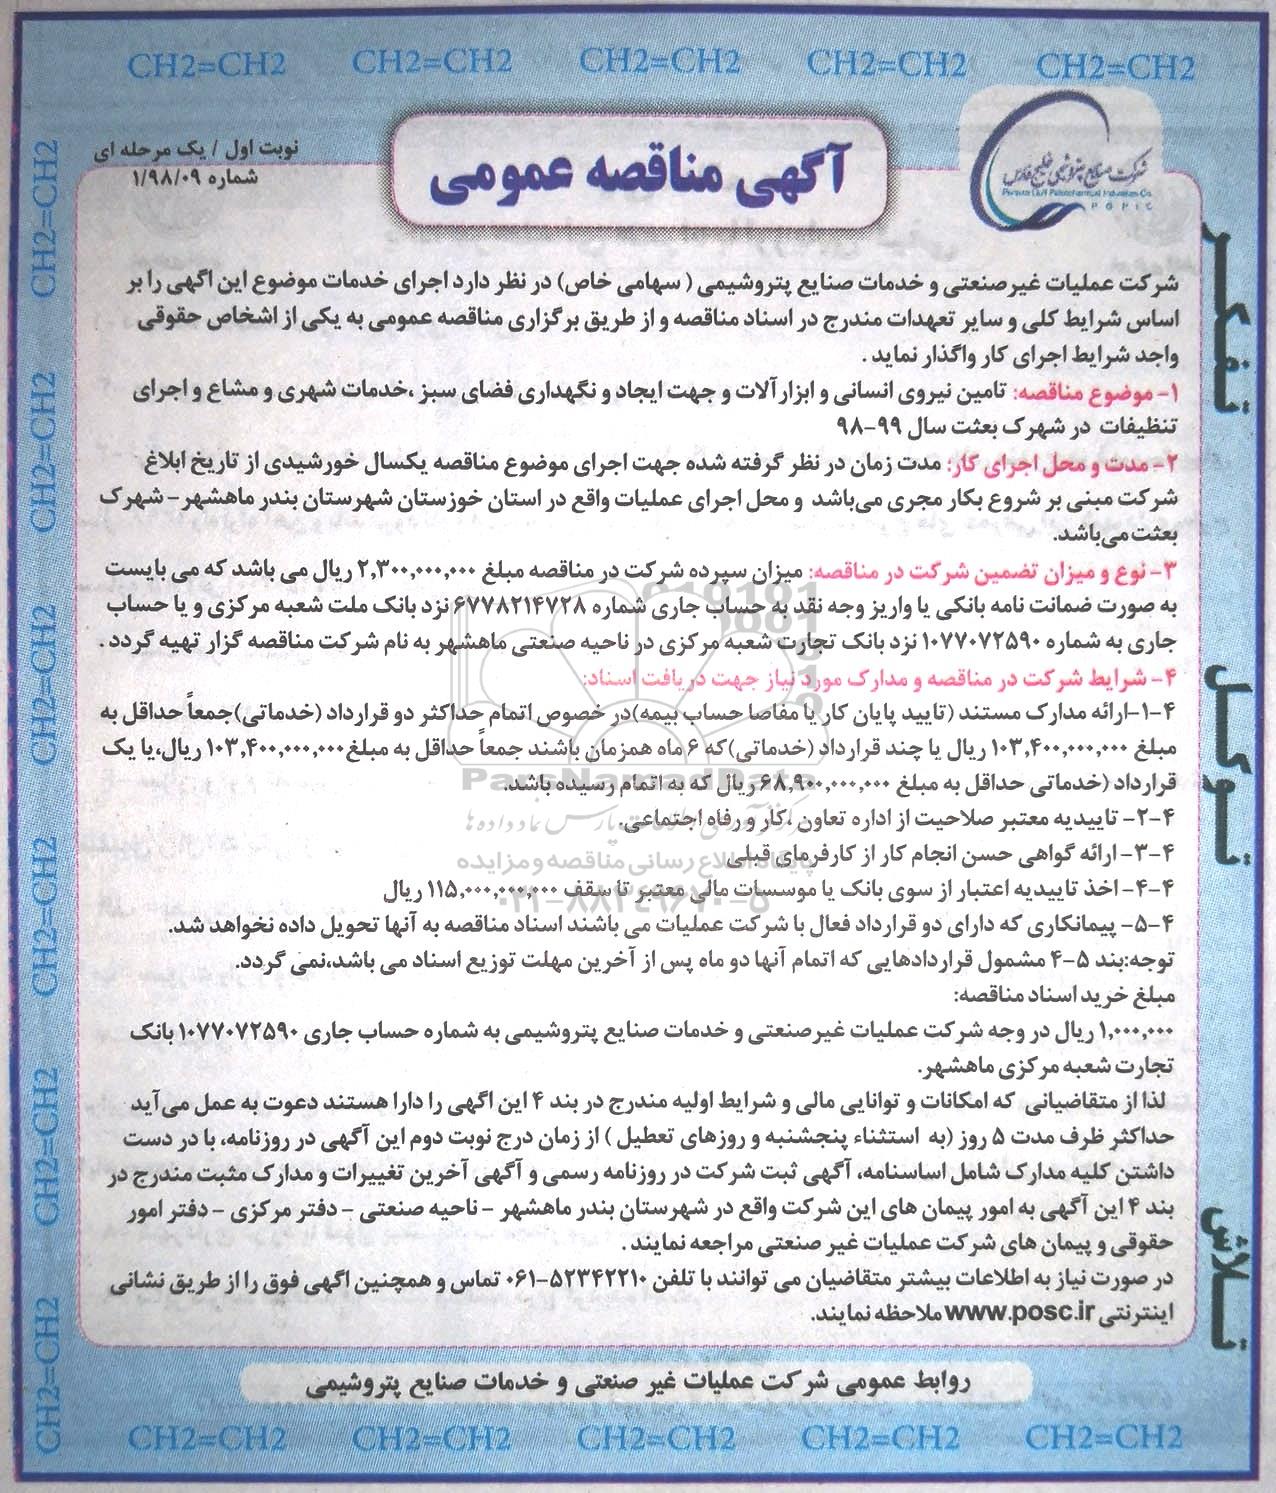 CH2=CH2 CH2=CH2 CH2=CH2 CH2=CH2 CH2=CH2
شرکت صنایع پتروشیمی خلیج فارس
Persian Gulf Petrochemical Industries Co.
PGPIC
آگهی مناقصه عمومی
نوبت اول / یک مرحله ای
شماره ۱/۹۸/۰۹
شرکت عملیات غیرصنعتی و خدمات صنایع پتروشیمی ( سهامی خاص) در نظر دارد اجرای خدمات موضوع این اگهی را بر
اساس شرایط کلی و سایر تعهدات مندرج در اسناد مناقصه و از طریق برگزاری مناقصه عمومی به یکی از اشخاص حقوقی
واجد شرایط اجرای کار واگذار نماید .
۱- موضوع مناقصه: تامین نیروی انسانی و ابزارآلات و جهت ایجاد و نگهداری فضای سبز ،خدمات شهری و مشاع و اجرای
تنظیفات در شهرک بعثت سال ۹۹-۹۸
۲- مدت و محل اجرای کار: مدت زمان در نظر گرفته شده جهت اجرای موضوع مناقصه یکسال خورشیدی از تاریخ ابلاغ
شرکت مبنی بر شروع بکار مجری می‌باشد و محل اجرای عملیات واقع در استان خوزستان شهرستان بندر ماهشهر - شهرک
بعثت می‌باشد.
۳- نوع و میزان تضمین شرکت در مناقصه: میزان سپرده شرکت در مناقصه مبلغ ۲,۳۰۰,۰۰۰,۰۰۰ ریال می باشد که می بایست
به صورت ضمانت نامه بانکی یا واریز وجه نقد به حساب جاری شماره ۶۷۷۸۲۱۴۷۲۸ نزد بانک ملت شعبه مرکزی و یا حساب
جاری به شماره ۱۰۷۷۰۷۲۵۹۰ نزد بانک تجارت شعبه مرکزی در ناحیه صنعتی ماهشهر به نام شرکت مناقصه گزار تهیه گردد .
۴- شرایط شرکت در مناقصه و مدارک مورد نیاز جهت دریافت اسناد:
۴-۱-ارائه مدارک مستند (تایید پایان کار یا مفاصا حساب بیمه)در خصوص اتمام حداکثر دو قرارداد (خدماتی)جمعاً حداقل به
مبلغ ۱۰۳,۴۰۰,۰۰۰,۰۰۰ ریال یا چند قرارداد (خدماتی)که ۶ ماه همزمان باشند جمعاً حداقل به مبلغ۱۰۳,۴۰۰,۰۰۰,۰۰۰ ریال،یا یک
قرارداد (خدماتی حداقل به مبلغ ۶۸,۹۰۰,۰۰۰,۰۰۰ ریال که به اتمام رسیده باشد.
۴-۲- تاییدیه معتبر صلاحیت از اداره تعاون ،کار و رفاه اجتماعی.
۴-۳- ارائه گواهی حسن انجام کار از کارفرمای قبلی
۴-۴- اخذ تاییدیه اعتبار از سوی بانک یا موسسات مالی معتبر تا سقف ۱۱۵,۰۰۰,۰۰۰,۰۰۰ ریال
۴-۵- پیمانکاری که دارای دو قرارداد فعال با شرکت عملیات می باشند اسناد مناقصه به آنها تحویل داده نخواهد شد.
توجه:بند ۵-۴ مشمول قراردادهایی که اتمام آنها دو ماه پس از آخرین مهلت توزیع اسناد می باشد،نمی گردد.
مبلغ خرید اسناد مناقصه:
۱,۰۰۰,۰۰۰ ریال در وجه شرکت عملیات غیرصنعتی و خدمات صنایع پتروشیمی به شماره حساب جاری ۱۰۷۷۰۷۲۵۹۰ بانک
تجارت شعبه مرکزی ماهشهر.
لذا از متقاضیانی که امکانات و توانایی مالی و شرایط اولیه مندرج در بند ۴ این اگهی را دارا هستند دعوت به عمل می‌آید
حداکثر ظرف مدت ۵ روز (به استثناء پنجشنبه و روزهای تعطیل ) از زمان درج نوبت دوم این آگهی در روزنامه، با در دست
داشتن کلیه مدارک شامل اساسنامه، آگهی ثبت شرکت در روزنامه رسمی و آگهی آخرین تغییرات و مدارک مثبت مندرج در
بند ۴ این آگهی به امور پیمان های این شرکت واقع در شهرستان بندر ماهشهر - ناحیه صنعتی - دفتر مرکزی - دفتر امور
حقوقی و پیمان های شرکت عملیات غیر صنعتی مراجعه نمایند .
در صورت نیاز به اطلاعات بیشتر متقاضیان می توانند با تلفن ۵۲۳۴۲۲۱۰-۰۶۱ تماس و همچنین اگهی فوق را از طریق نشانی
اینترنتی www.posc.ir ملاحظه نمایند.
روابط عمومی شرکت عملیات غیر صنعتی و خدمات صنایع پتروشیمی
تفکر
توکل
تلاش
CH2=CH2
CH2=CH2
CH2=CH2
CH2=CH2
CH2=CH2
CH2=CH2
CH2=CH2 CH2=CH2 CH2=CH2 CH2=CH2 CH2=CH2
ParsNamadData
مرکز فرآوری اطلاعات پارس نماد داده ها
پایگاه اطلاع رسانی مناقصه و مزایده
۰۲۱-۸۸۳۴۹۶۷۰-۵